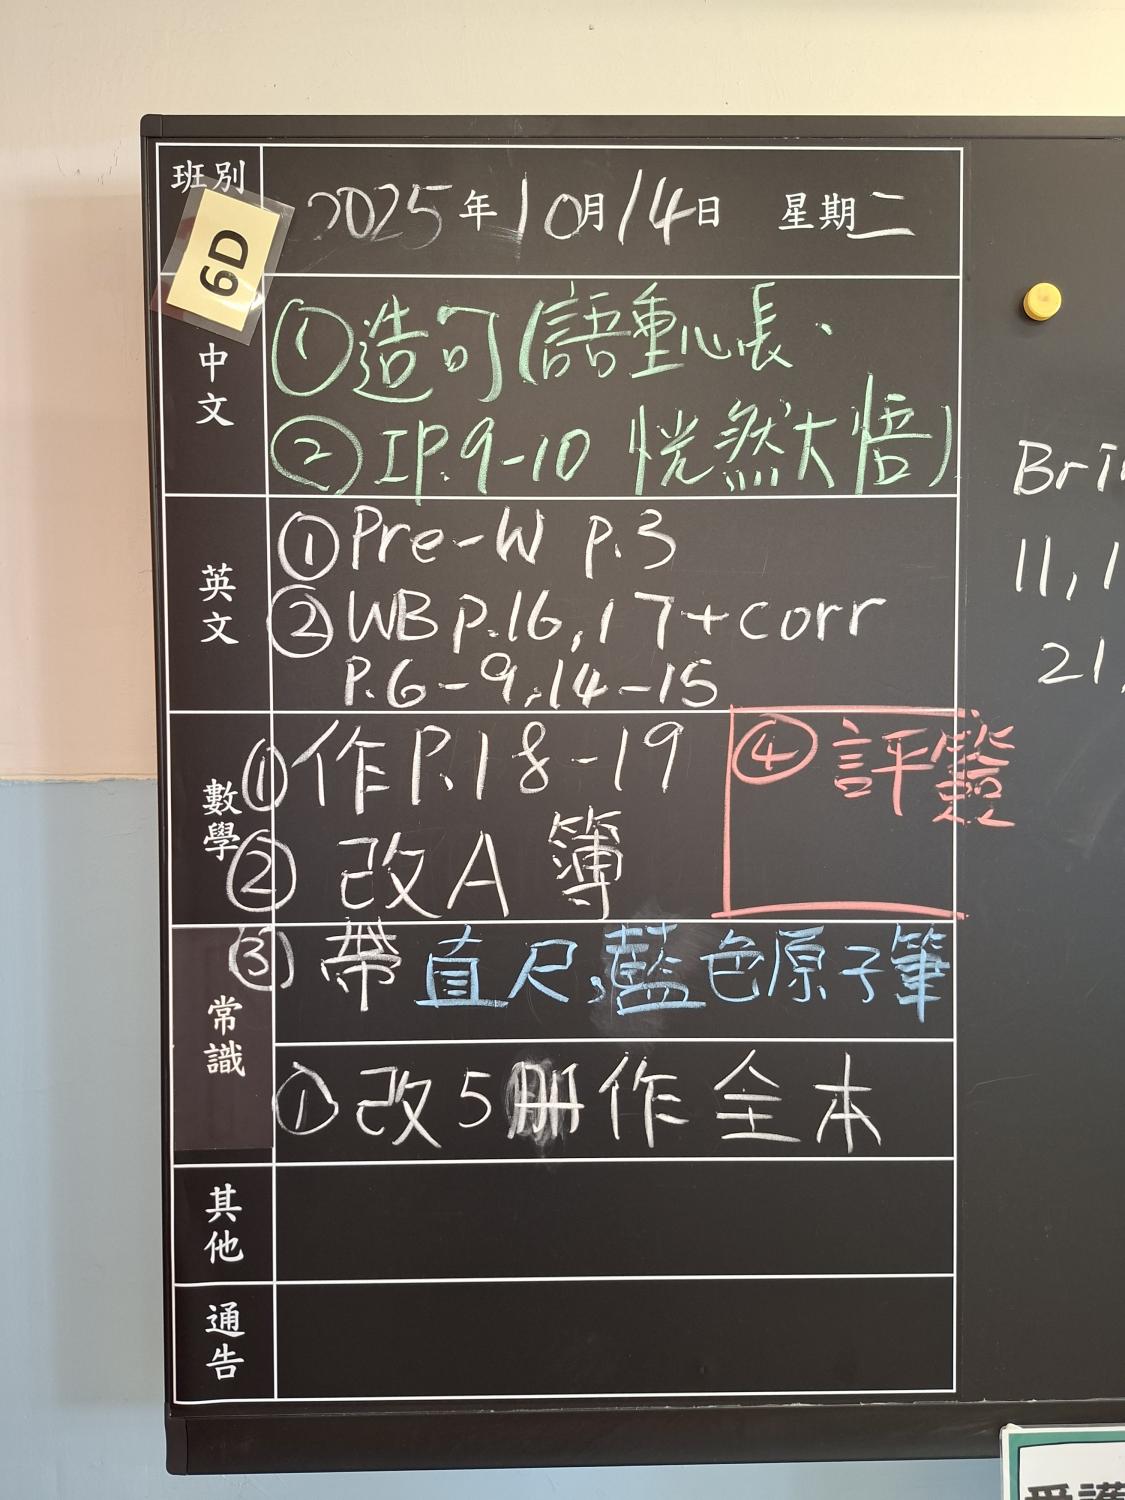 班別
6D
2025年10月14日 星期二
中文
①造句(語重心長、
②IP.9-10 恍然大悟)
英文
①Pre-W p.3
②WB p.16,17+corr
P.6-9,14-15
數學
①作P.18-19
②改A簿
③帶直尺,藍色原子筆
④評
常識
①改5冊作全本
其他
通告
Bri
11,1
21,
愛護